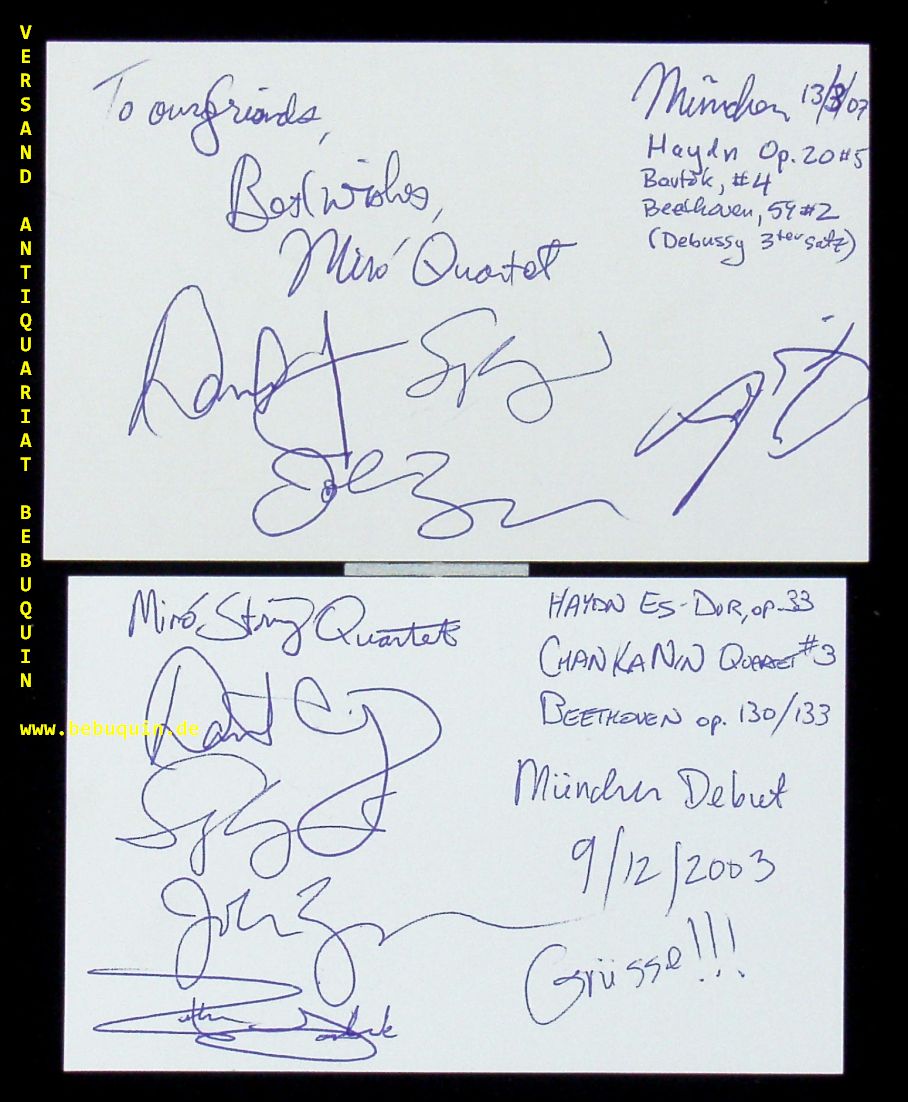 VERSAND ANTIQUARIAT BEBUQUIN
www.bebuquin.de
To our friends,
Best wishes,
Miró Quartet
München 13/3/07
Haydn Op. 20 #5
Bartók, #4
Beethoven, 59 #2
(Debussy 3ter satz)
Miró String Quartet
Daniel Ching
John
HAYDN ES-DUR, op. 33
CHAN KA NIN QUARTET #3
BEETHOVEN op. 130/133
München Debut
9/12/2003
Grüsse!!!